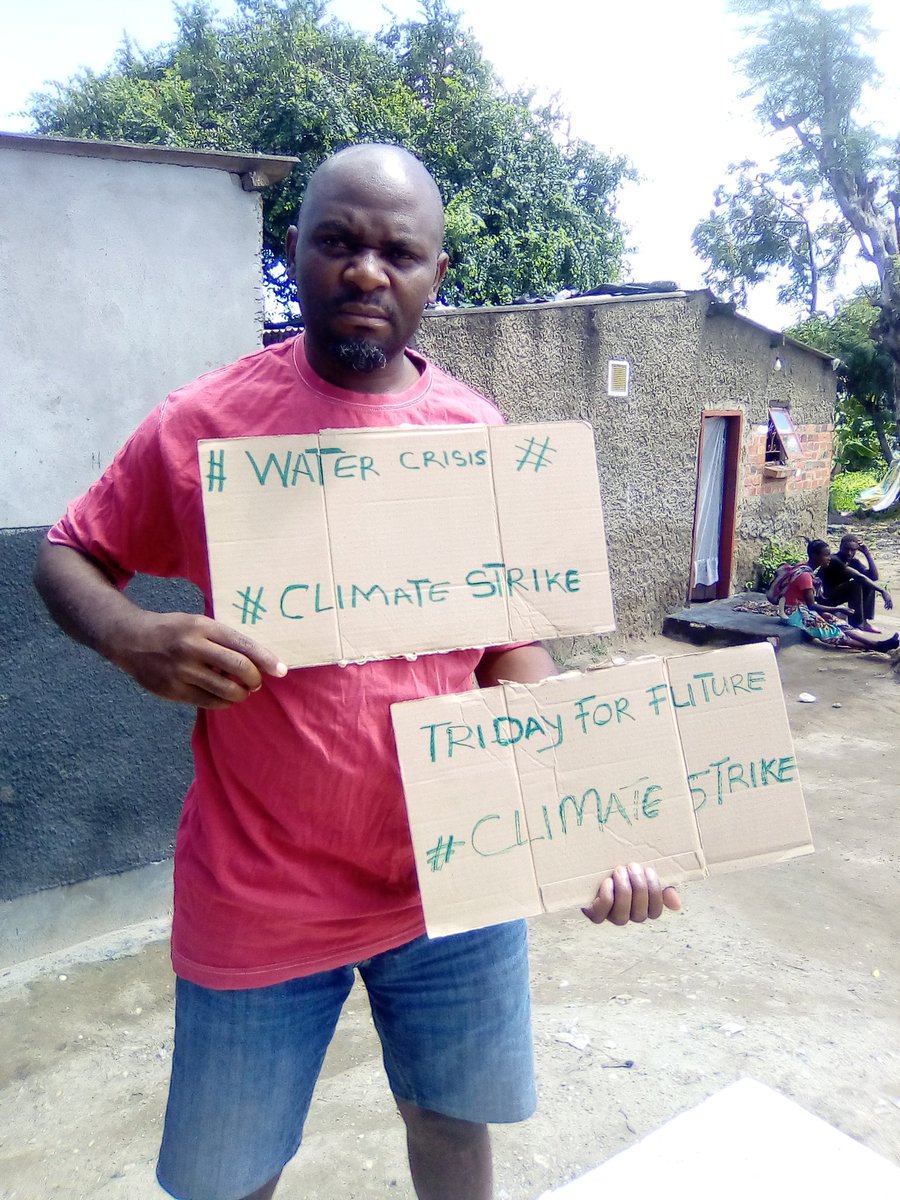 # WATER CRISIS #
# CLIMATE STRIKE
TRIDAY FOR FUTURE
# CLIMATE STRIKE